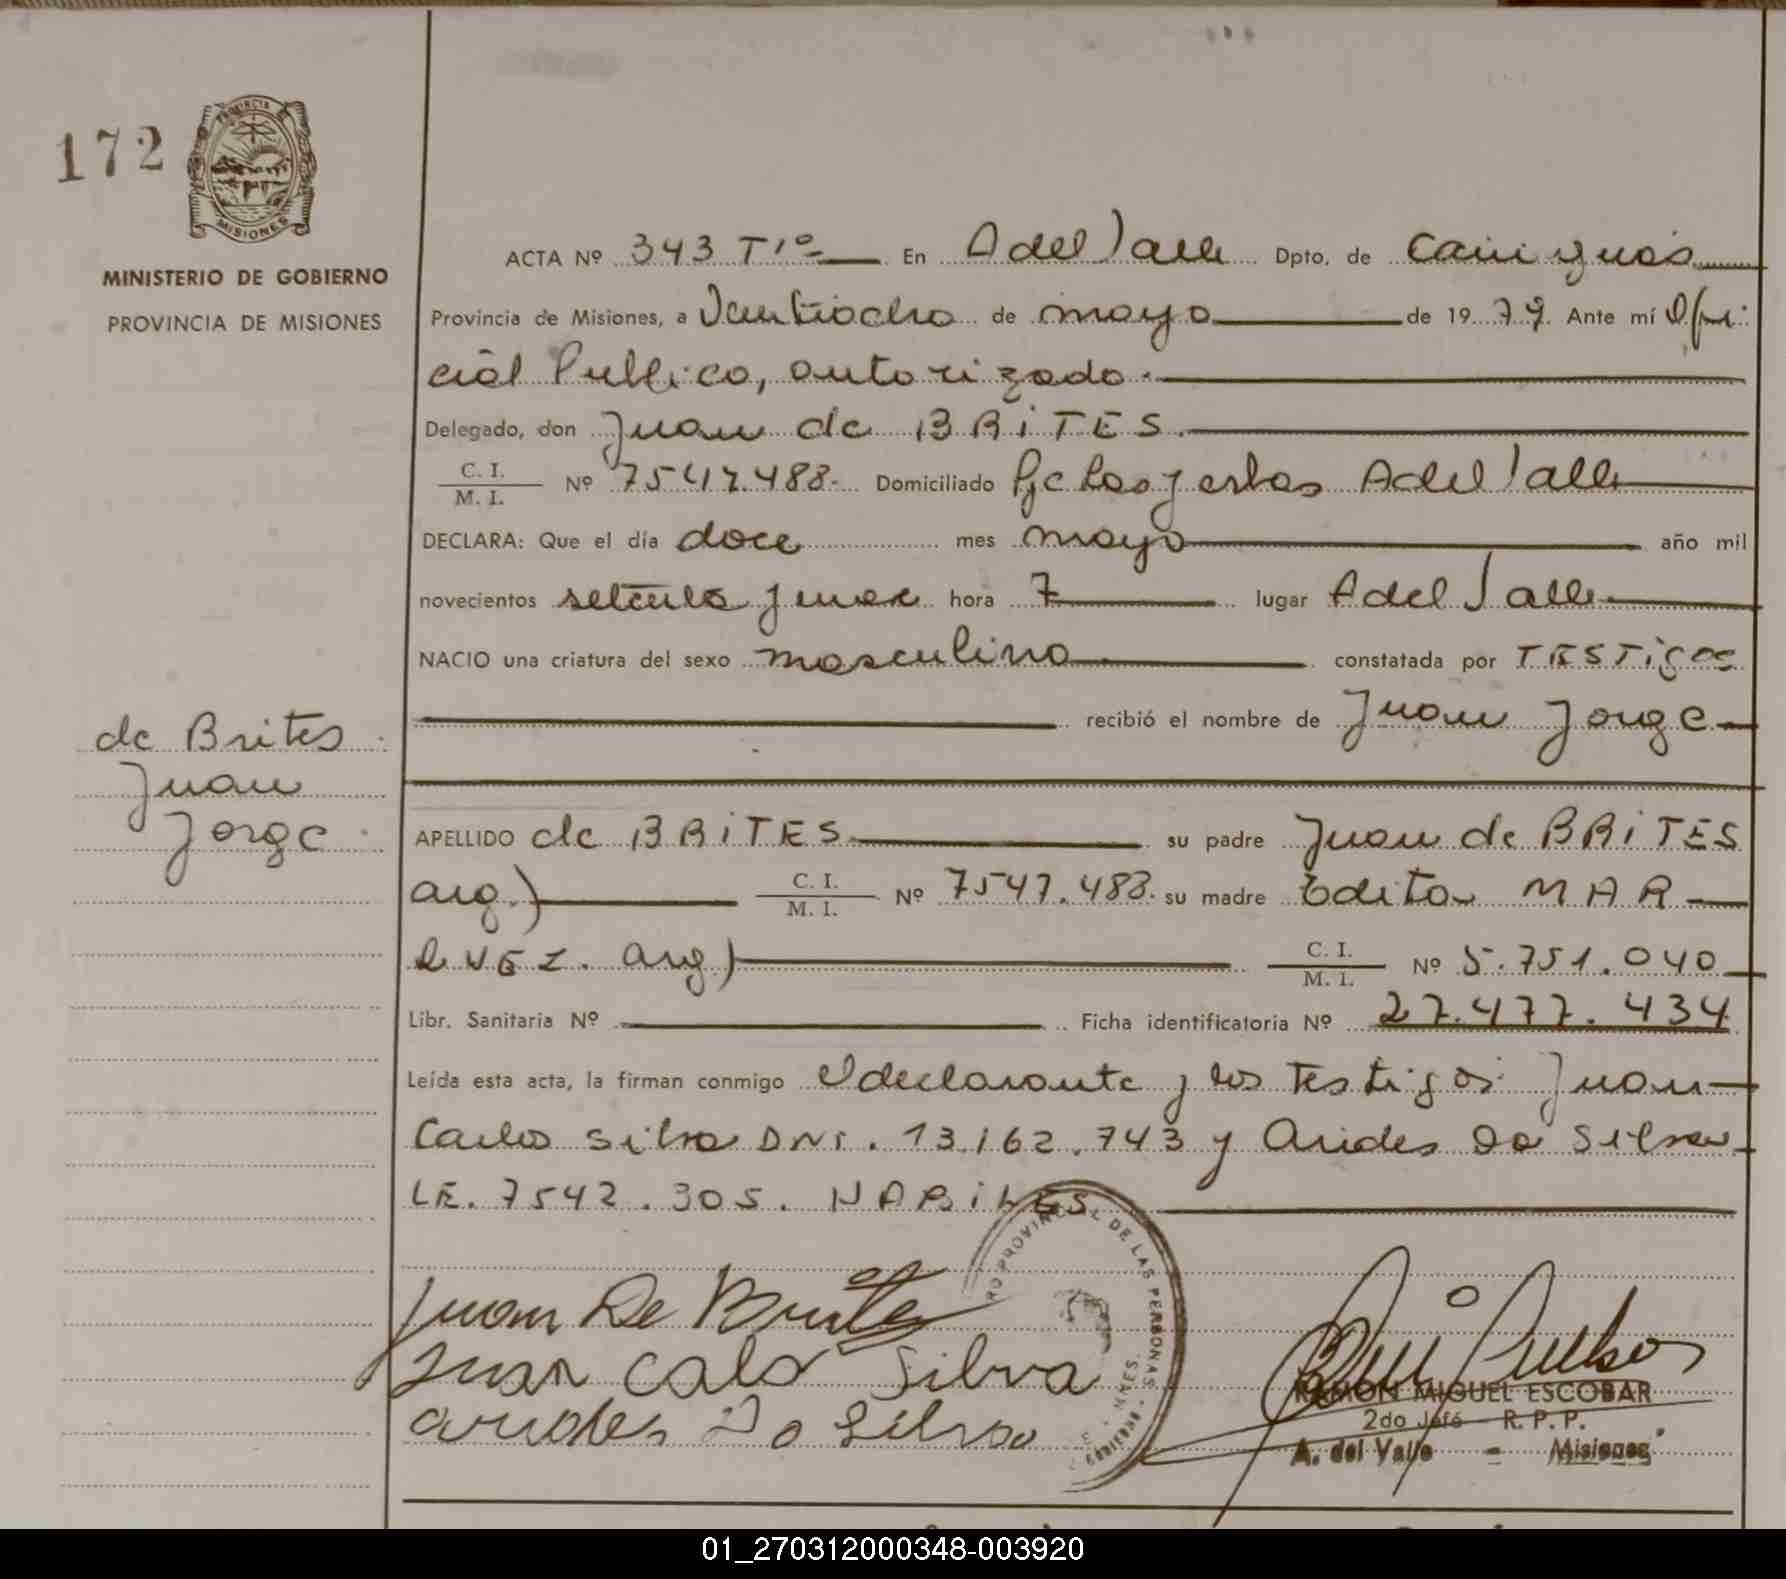 172
PROVINCIA
MISIONES
MINISTERIO DE GOBIERNO
PROVINCIA DE MISIONES
ACTA Nº 343 Tº 1º En A del Valle Dpto. de Cainguás
Provincia de Misiones, a Ventiocho de mayo de 1979. Ante mí Ofi-
cial Publico, autorizado.
Delegado, don Juan de BRiTES.
C. I.
M. I. Nº 7547.488. Domiciliado Pje Las yerbas A del Valle
DECLARA: Que el día doce mes mayo año mil
novecientos setenta y nueve hora 7 lugar A del Valle
NACIO una criatura del sexo masculino constatada por TESTigos
recibió el nombre de Juan Jorge
de Brites
Juan
Jorge
APELLIDO de BRiTES su padre Juan de BRiTES
arg.) C. I.
M. I. Nº 7547.488. su madre Edita MAR
QUEZ. arg) C. I.
M. I. Nº 5.751.040
Libr. Sanitaria Nº Ficha identificatoria Nº 27.477.434
Leída esta acta, la firman conmigo el declarante y los testigos: Juan
Carlos Silva DNi. 13.162.743 y Arides Da Silva
LE. 7542.305. HABiLES
Juan De Brites
Juan Calo Silva
arides Da Silva
PROVINCIAL DE LAS PERSONAS
RAMON MIGUEL ESCOBAR
2do Jefe R. P. P.
A. del Valle - Misiones
01_270312000348-003920